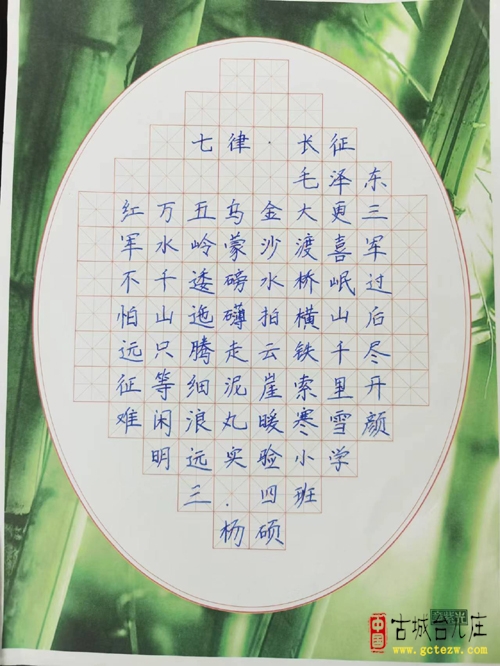 七律·长征
毛泽东
红军不怕远征难
万水千山只等闲
五岭逶迤腾细浪
乌蒙磅礴走泥丸
金沙水拍云崖暖
大渡桥横铁索寒
更喜岷山千里雪
三军过后尽开颜
明远实验小学
三.四班
杨硕
中国 古城台儿庄
www.gctezw.com